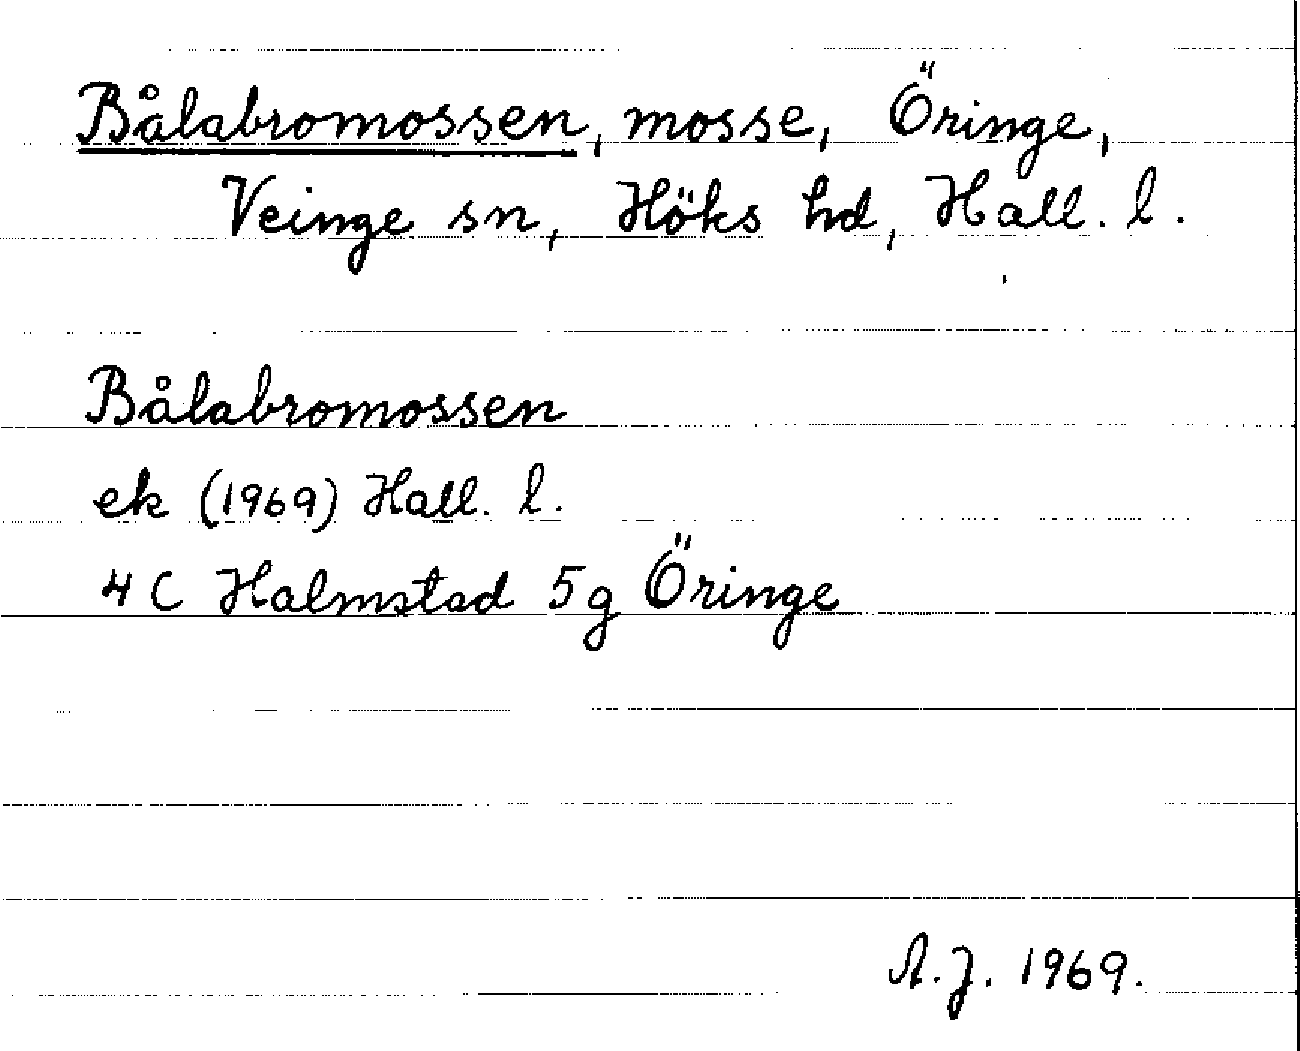 Bålabromossen, mosse, Öringe,
Veinge sn, Höks hd, Hall. l.
Bålabromossen
ek (1969) Hall. l.
4 C Halmstad 5g Öringe
A.J. 1969.